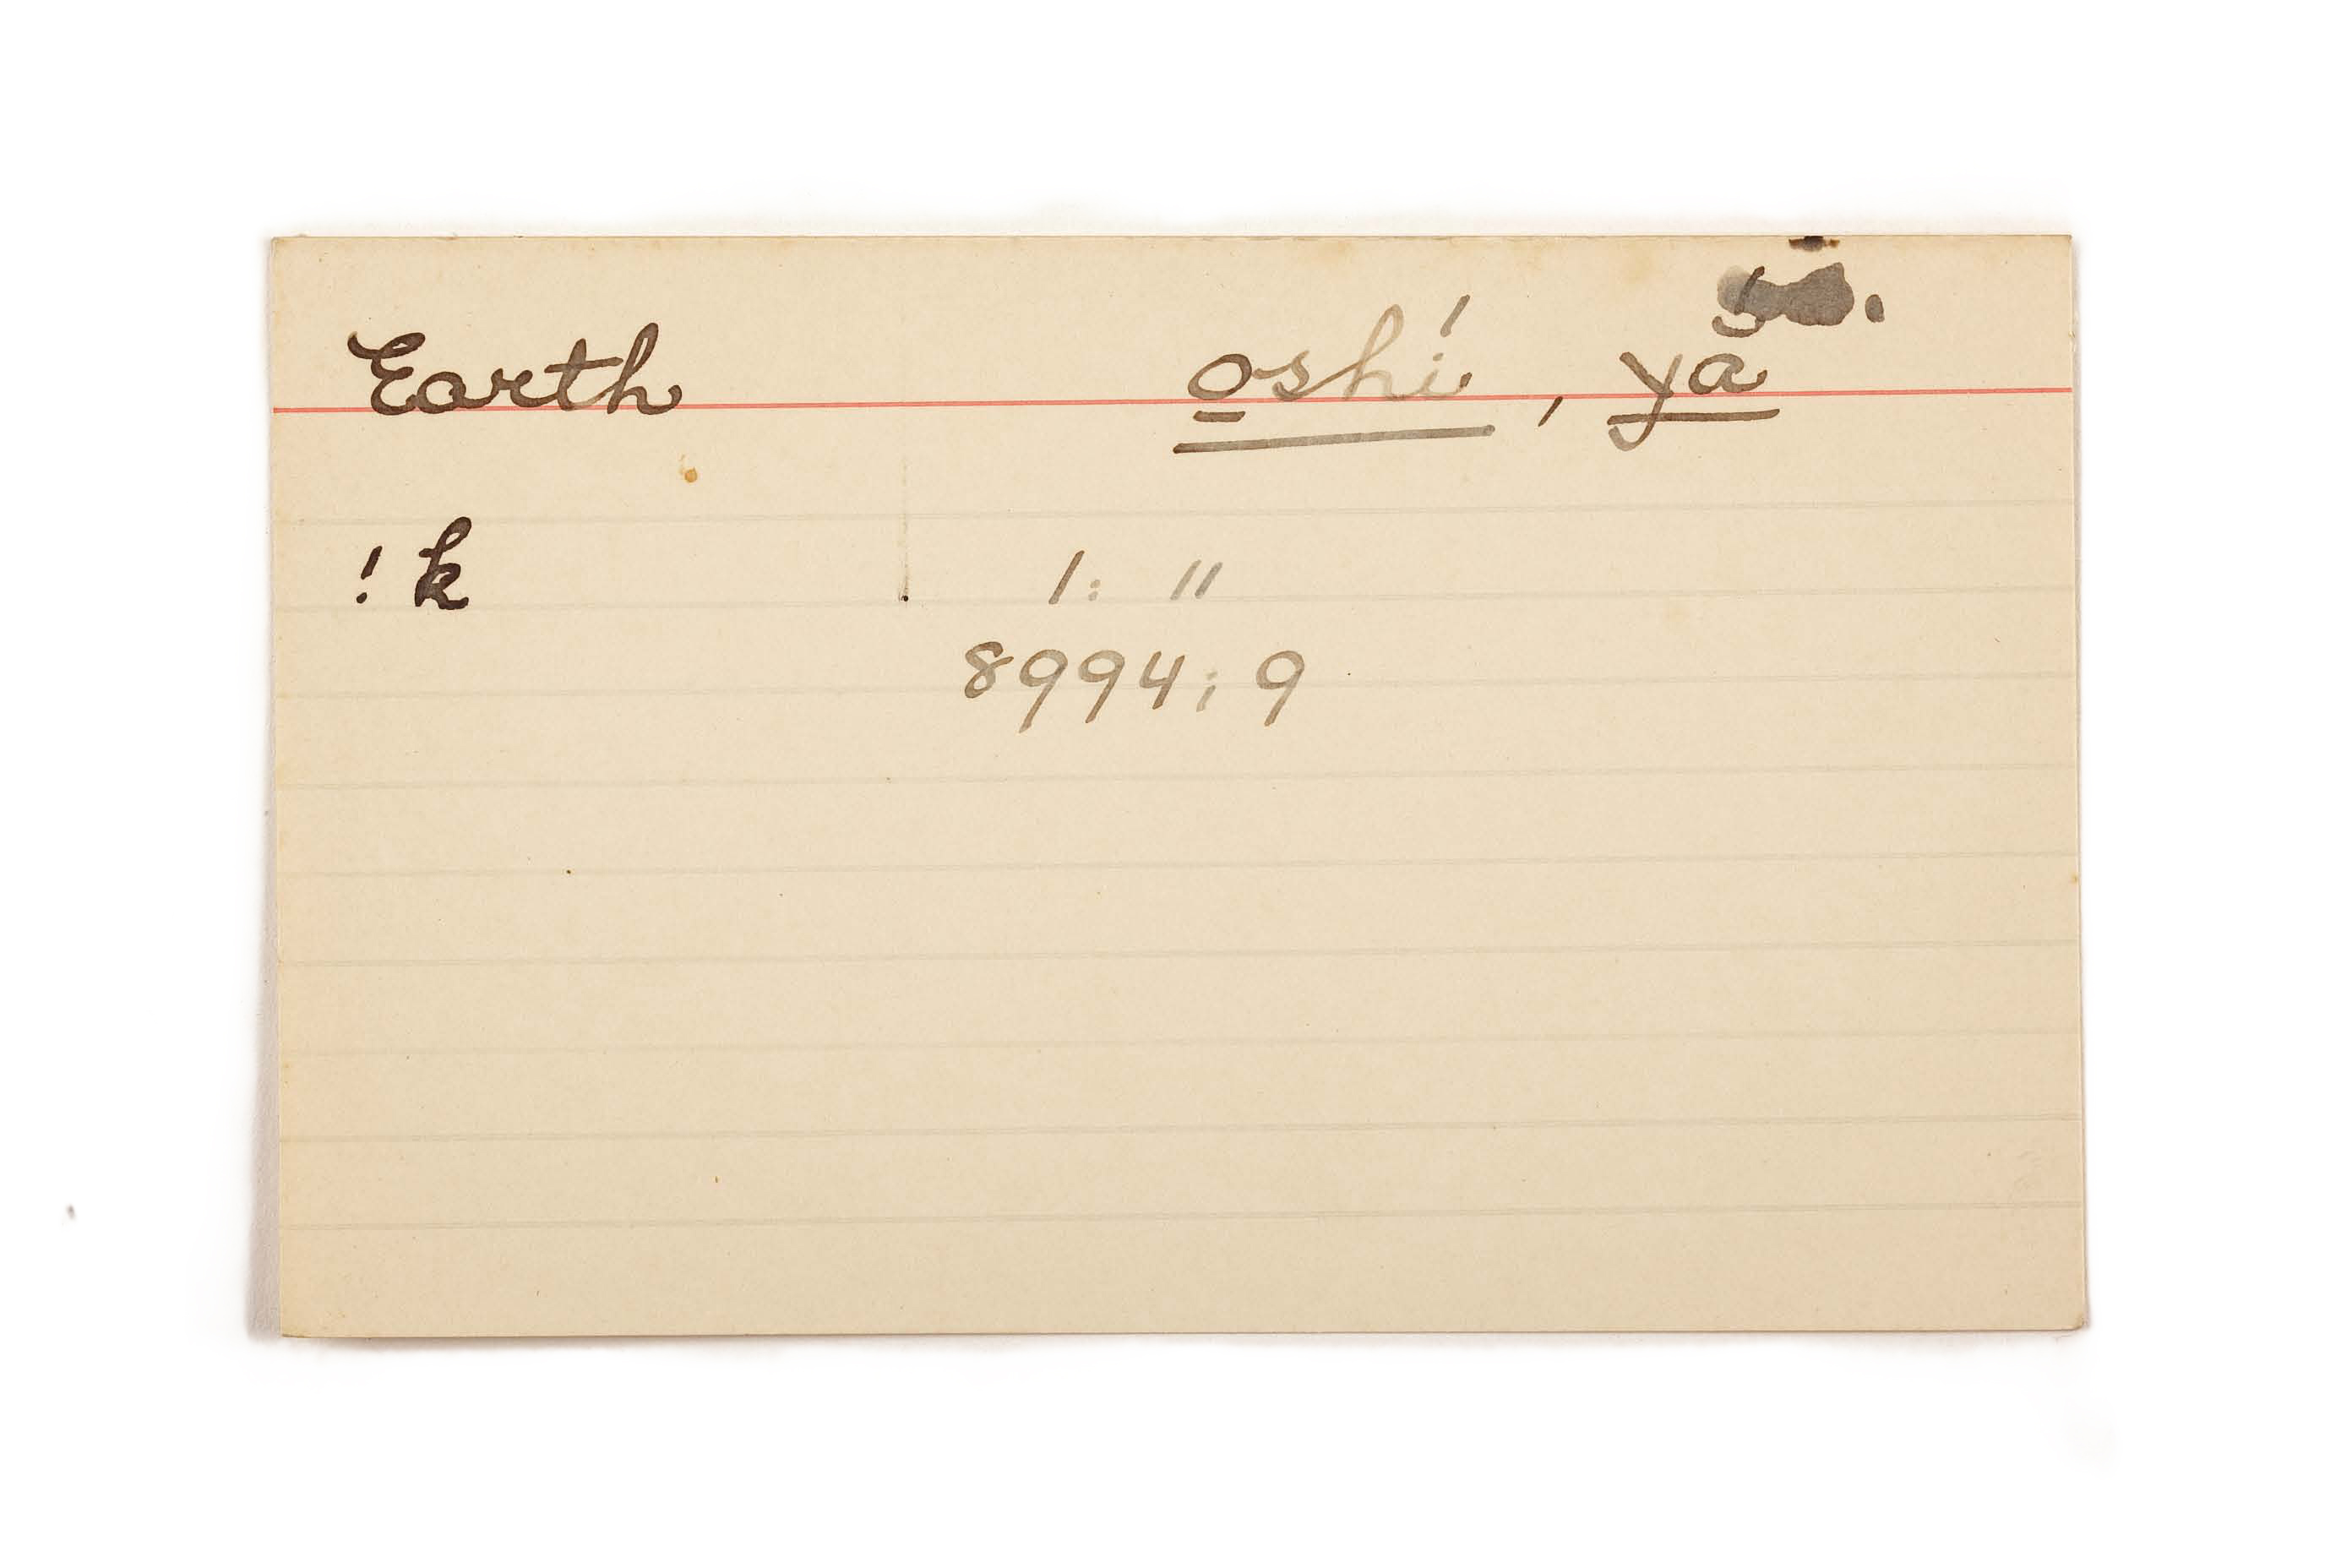 Earth o̲shí, yắ.
!k 1: 11
8994; 9